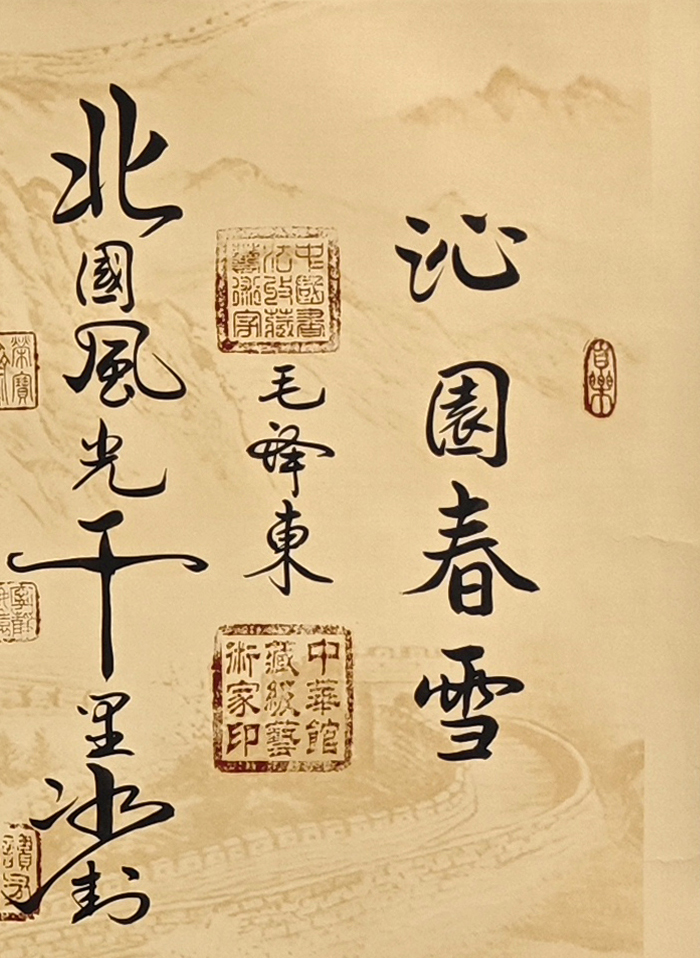 沁園春雪
中國書
法收藏
毛澤東
中華館
藏級藝
術家印
北國風光千里冰封
榮寶